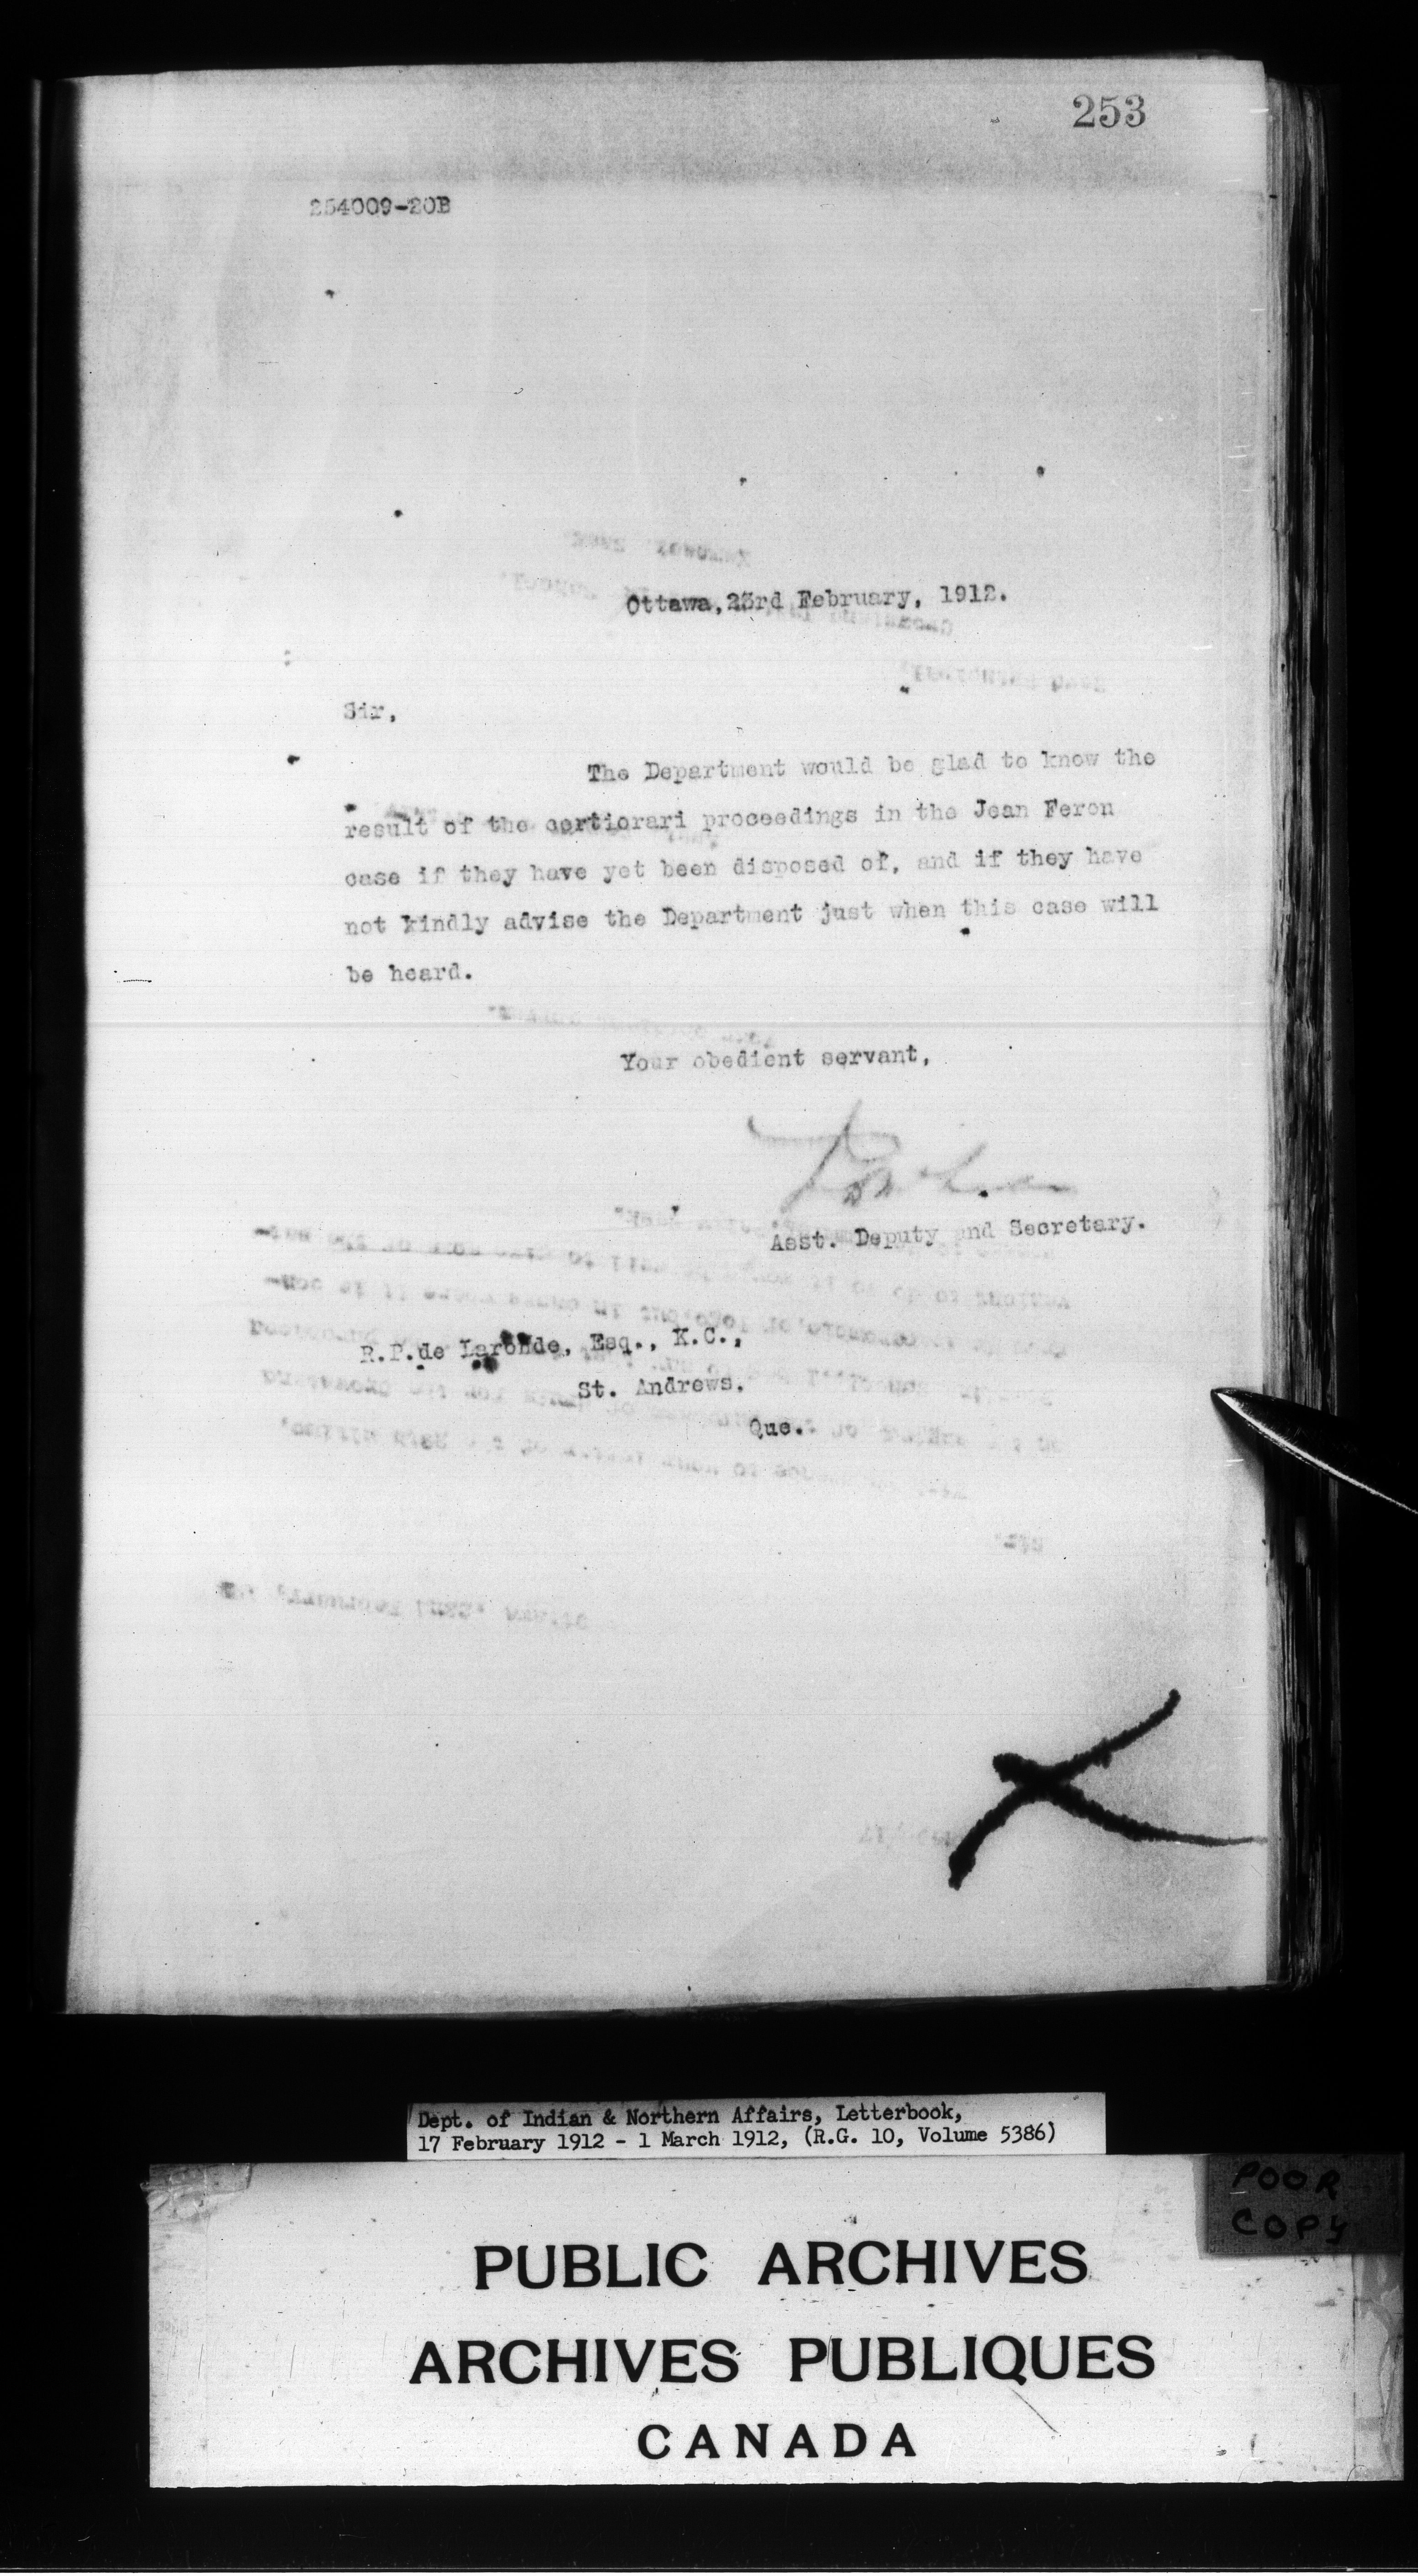 253
254009-20B
Ottawa, 23rd February, 1912.
Sir,
The Department would be glad to know the
result of the certiorari proceedings in the Jean Feron
case if they have yet been disposed of, and if they have
not kindly advise the Department just when this case will
be heard.
Your obedient servant,
Asst. Deputy and Secretary.
R.P.de Laronde, Esq., K.C.,
St. Andrews,
Que.
Dept. of Indian & Northern Affairs, Letterbook,
17 February 1912 - 1 March 1912, (R.G. 10, Volume 5386)
POOR
COPY
PUBLIC ARCHIVES
ARCHIVES PUBLIQUES
CANADA